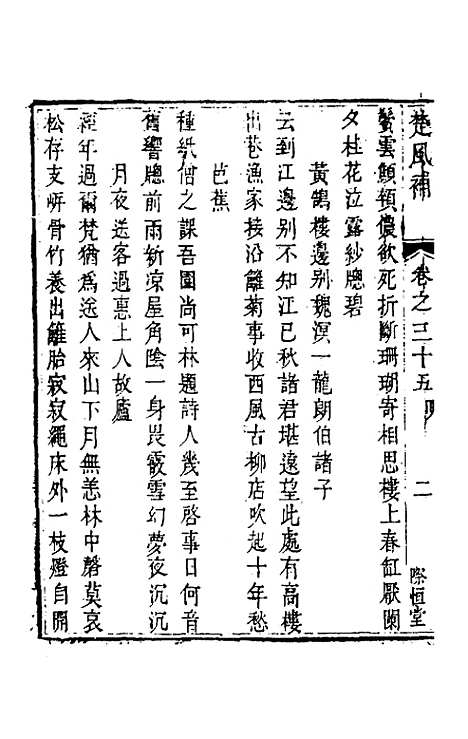 楚風補 卷之三十五 二 際恒堂
鬢雲顛頓儂欲死折斷珊瑚寄相思樓上春缸厭闌
夕桂花泣露紗牕碧
黃鶴樓邊別魏溟一龍朗伯諸子
云到江邊別不知江已秋諸君堪遠望此處有高樓
出巷漁家接沿籬菊事收西風古柳店吹起十年愁
芭蕉
種紙僧之課吾園尚可林題詩人幾至啓事日何音
舊響牕前雨新涼屋角陰一身畏霰雪幻夢夜沉沉
月夜送客過惠上人故廬
經年過爾梵猶爲送人來山下月無恙林中磬莫哀
松存支硎骨竹養出籬胎寂寂繩床外一枝燈自開